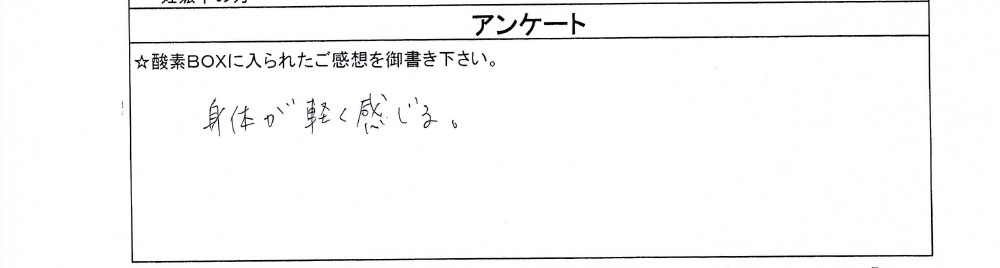 アンケート
☆酸素BOXに入られたご感想を御書き下さい。
身体が軽く感じる。